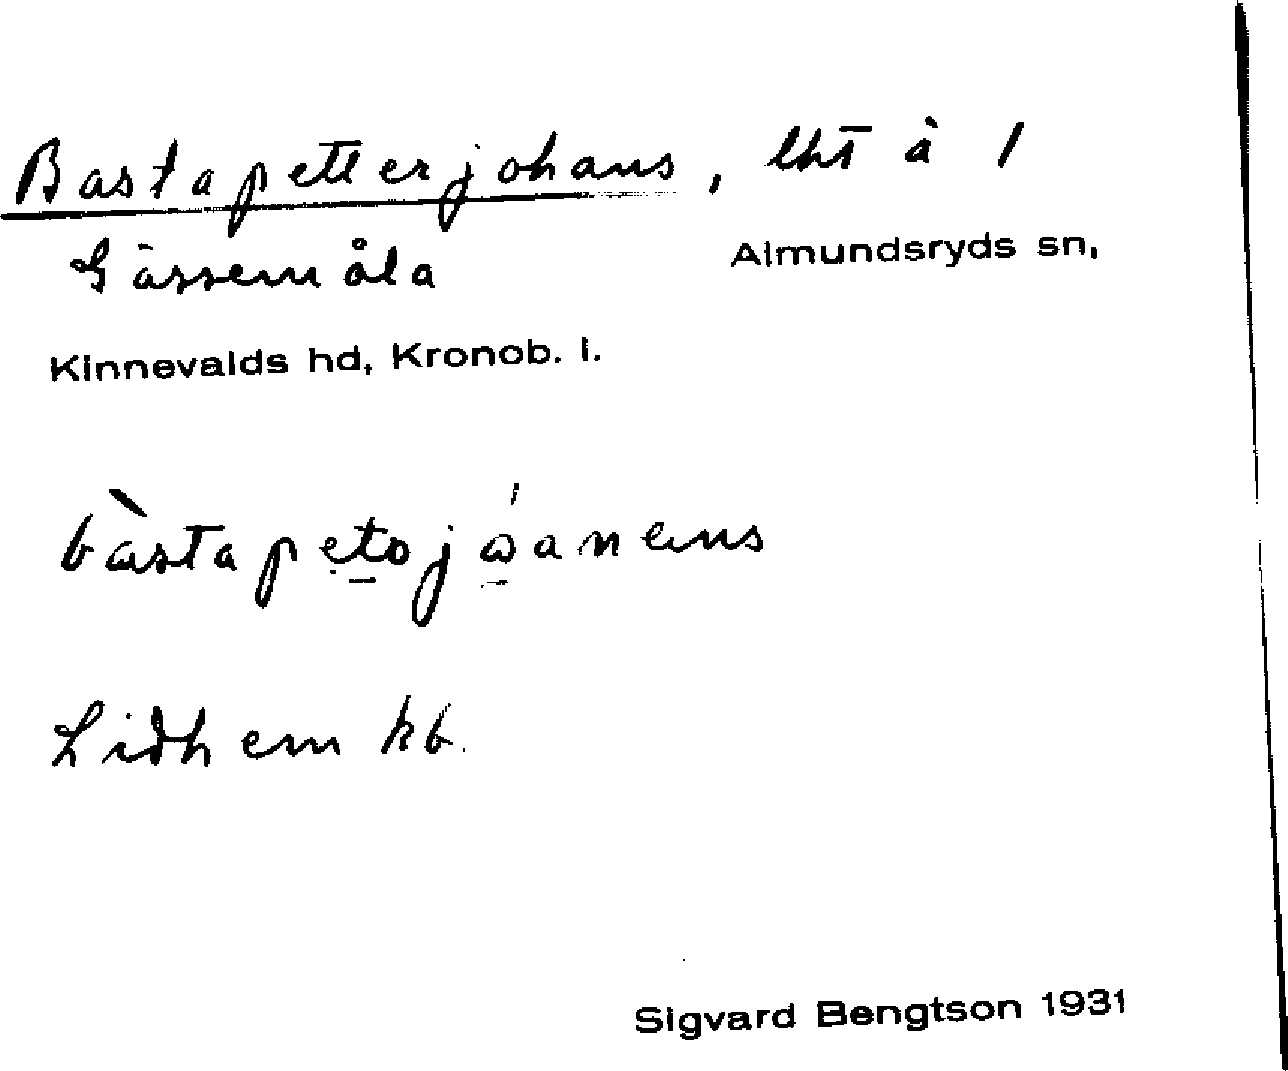 Bastapetterjohans, lht å 1
Gässemåla Almundsryds sn,
Kinnevalds hd, Kronob. l.
Lidhem kb.
Sigvard Bengtson 1931